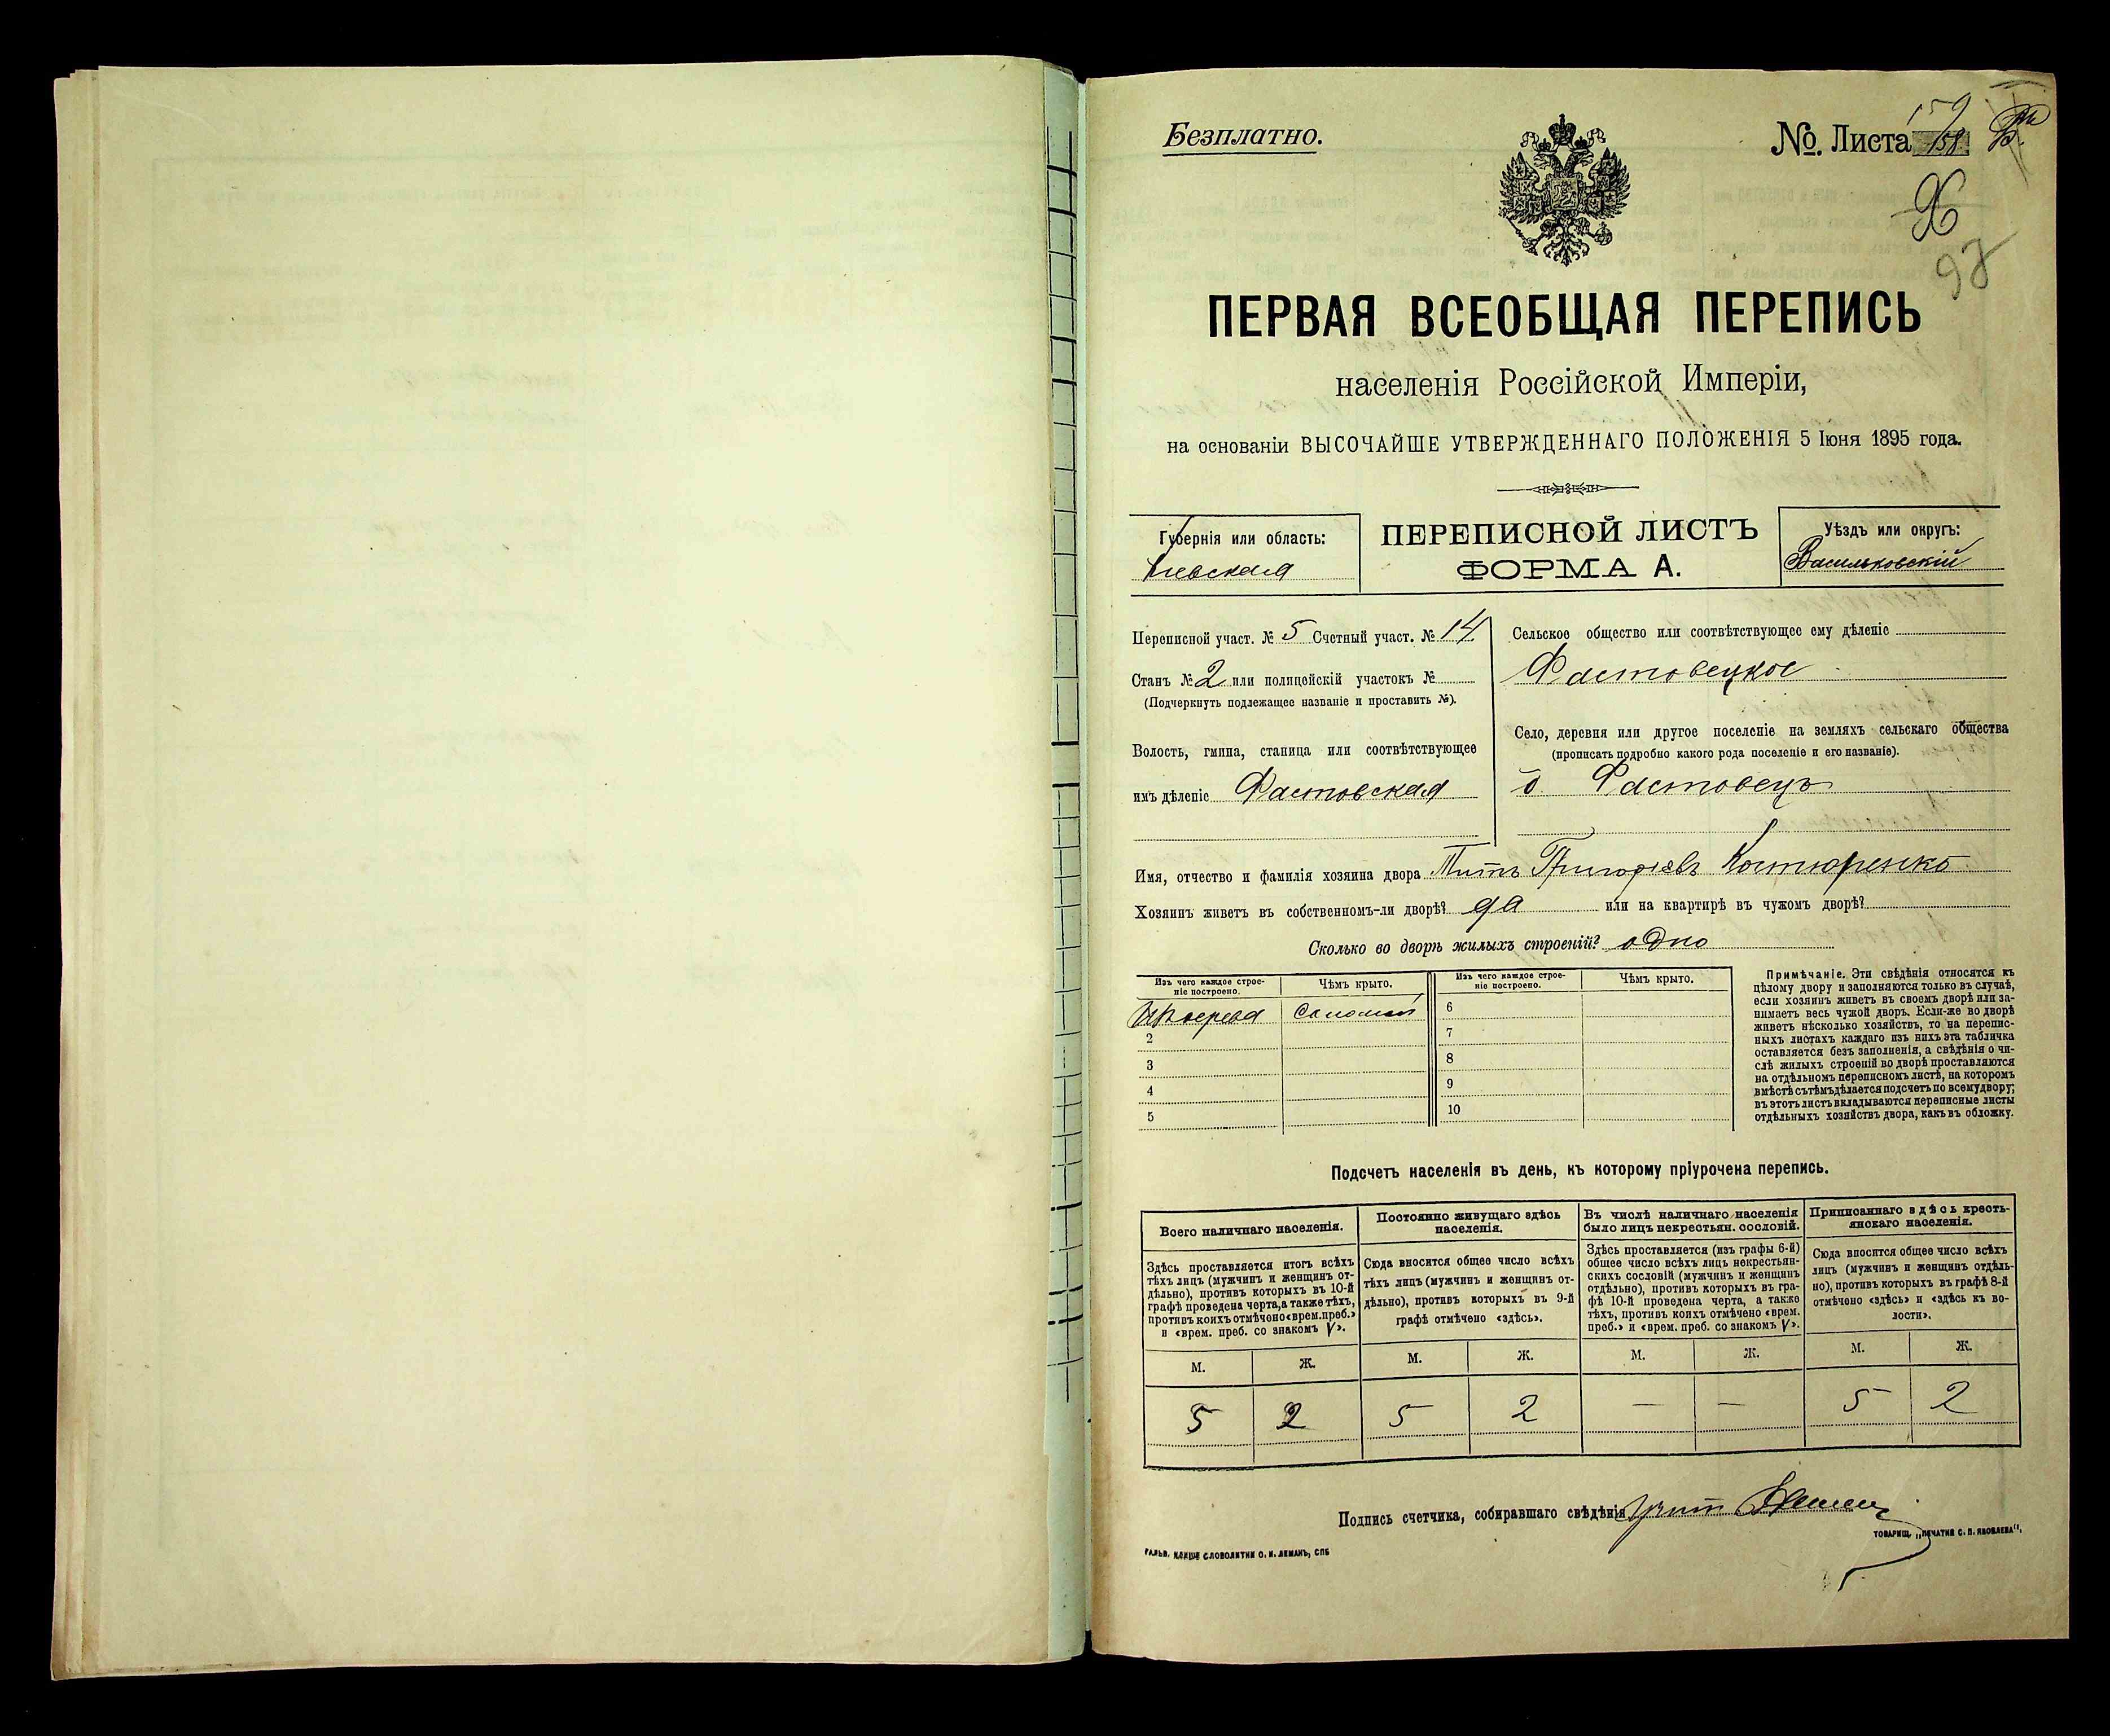 Безплатно.
№. Листа 159
158
97
ПЕРВАЯ ВСЕОБЩАЯ ПЕРЕПИСЬ
населенія Россійской Имперіи,
на основаніи ВЫСОЧАЙШЕ УТВЕРЖДЕННАГО ПОЛОЖЕНІЯ 5 Іюня 1895 года.
Губернія или область:
Кіевская
ПЕРЕПИСНОЙ ЛИСТЪ
ФОРМА А.
Уѣздъ или округъ:
Васильковскій
Переписной участ. № 5 Счетный участ. № 14
Станъ № 2 или полицейскій участокъ №
(Подчеркнуть подлежащее названіе и проставить №).
Волость, гмина, станица или соотвѣтствующее
имъ дѣленіе Фастовская
Сельское общество или соотвѣтствующее ему дѣленіе
Фастовецкое
Село, деревня или другое поселеніе на земляхъ сельскаго общества
(прописать подробно какого рода поселеніе и его названіе).
д. Фастовецъ
Имя, отчество и фамилія хозяина двора Титъ Григорьевъ Костюренко
Хозяинъ живетъ въ собственномъ-ли дворѣ? да или на квартирѣ въ чужомъ дворѣ?
Сколько во дворѣ жилыхъ строеній? одно
Изъ чего каждое строе-
ніе построено.
Чѣмъ крыто.
Изъ чего каждое строе-
ніе построено.
Чѣмъ крыто.
Соломой
6
2
7
3
8
4
9
5
10
Примѣчаніе. Эти свѣдѣнія относятся къ
цѣлому двору и заполняются только въ случаѣ,
если хозяинъ живетъ въ своемъ дворѣ или за-
нимаетъ весь чужой дворъ. Если-же во дворѣ
живетъ нѣсколько хозяйствъ, то на перепис-
ныхъ листахъ каждаго изъ нихъ эта табличка
оставляется безъ заполненія, а свѣдѣнія о чи-
слѣ жилыхъ строеній во дворѣ проставляются
на отдѣльномъ переписномъ листѣ, на которомъ
вмѣстѣ съ тѣмъ дѣлается подсчетъ по всему двору;
въ этотъ листъ вкладываются переписные листы
отдѣльныхъ хозяйствъ двора, какъ въ обложку.
Подсчетъ населенія въ день, къ которому пріурочена перепись.
Всего наличнаго населенія.
Постоянно живущаго здѣсь
населенія.
Въ числѣ наличнаго населенія
было лицъ некрестьян. сословій.
Приписаннаго здѣсь кресть-
янскаго населенія.
Здѣсь проставляется итогъ всѣхъ
тѣхъ лицъ (мужчинъ и женщинъ от-
дѣльно), противъ которыхъ въ 10-й
графѣ проведена черта, а также тѣхъ,
противъ коихъ отмѣчено «врем. преб.»
и «врем. преб. со знакомъ V».
Сюда вносится общее число всѣхъ
тѣхъ лицъ (мужчинъ и женщинъ от-
дѣльно), противъ которыхъ въ 9-й
графѣ отмѣчено «здѣсь».
Здѣсь проставляется (изъ графы 6-й)
общее число всѣхъ лицъ некрестьян-
скихъ сословій (мужчинъ и женщинъ
отдѣльно), противъ которыхъ въ гра-
фѣ 10-й проведена черта, а также
тѣхъ, противъ коихъ отмѣчено «врем.
преб.» и «врем. преб. со знакомъ V».
Сюда вносится общее число всѣхъ
лицъ (мужчинъ и женщинъ отдѣль-
но), противъ которыхъ въ графѣ 8-й
отмѣчено «здѣсь» и «здѣсь къ во-
лости».
М. Ж. М. Ж. М. Ж. М. Ж.
5 2 5 2 — — 5 2
Подпись счетчика, собиравшаго свѣдѣнія
ТОВАРИЩ. „ПЕЧАТНЯ С. П. ЯКОВЛЕВА".
ГАЛЬВ. КЛИШЕ СЛОВОЛИТНИ О. И. ЛЕМАНЪ, СПБ